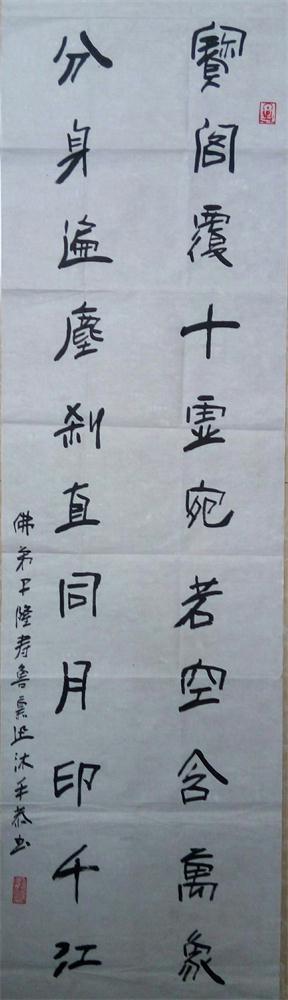 寶閣覆十虛宛若空含萬象
分身遍塵刹直同月印千江
佛弟子隆寿沐手恭书